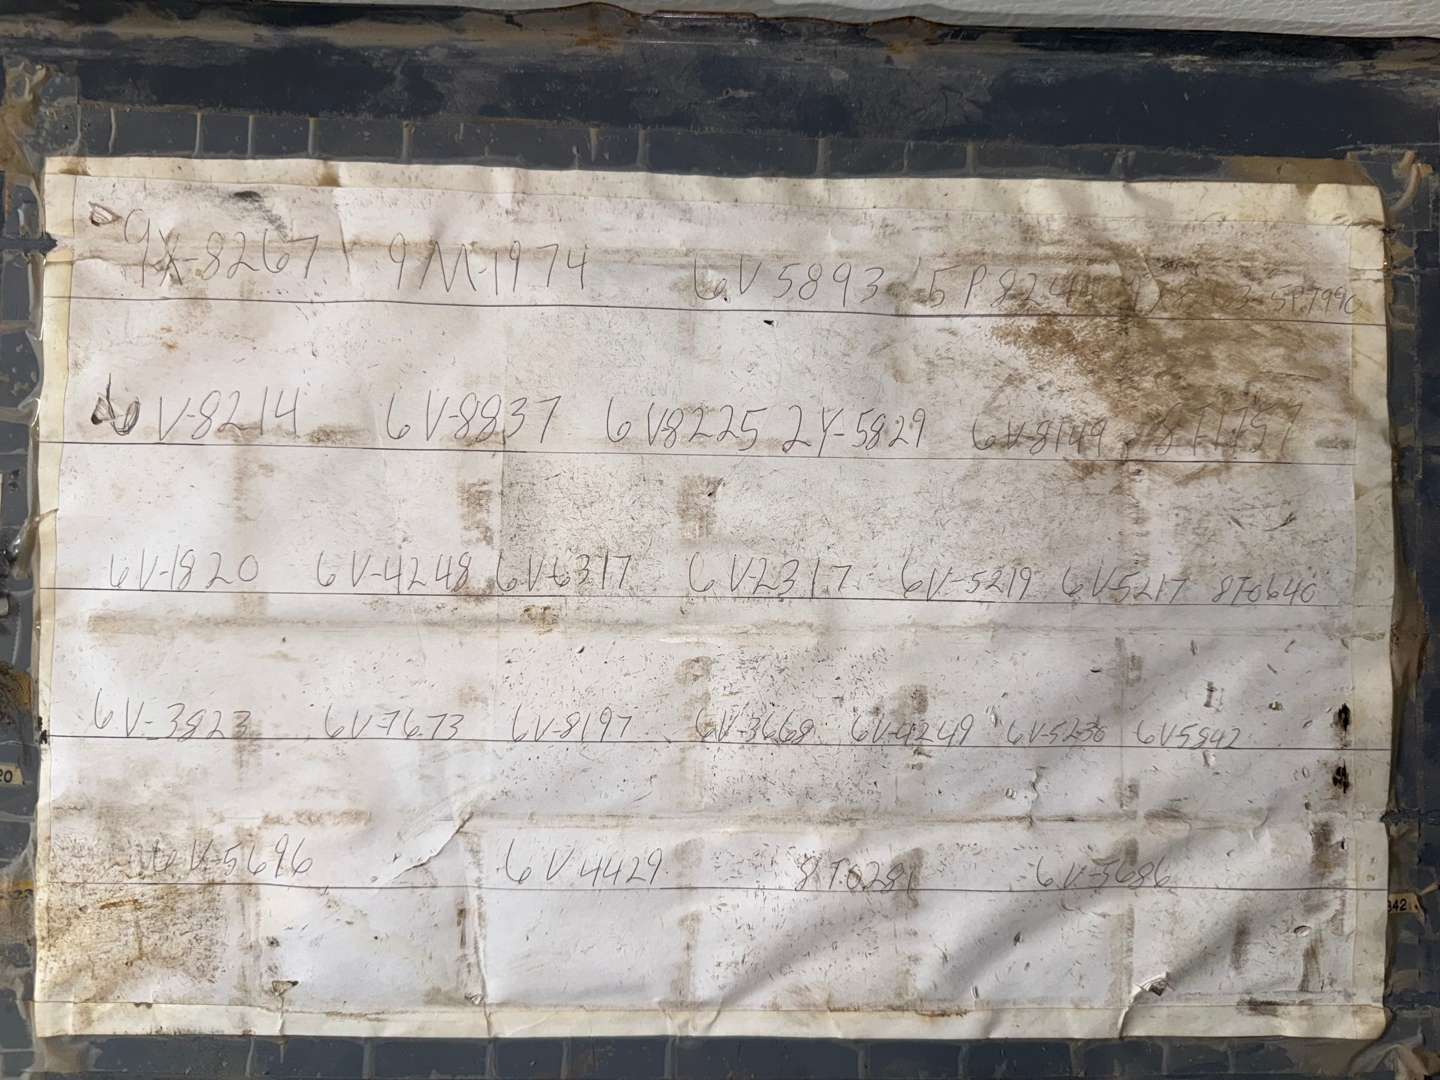 9X-8267 9M-1974 6V5893 5P824 5P7990
6V-8214 6V-8837 6V8225 2Y-5829 6V-8149 8T1757
6V-1820 6V-4248 6V6317 6V-2317 6V-5219 6V5217 8T0640
6V-3823 6V-7673 6V-8197 6V-3668 6V-4249 6V-5230 6V5842
6V-5696 6V-4429 8T0281 6V-5686
20
842